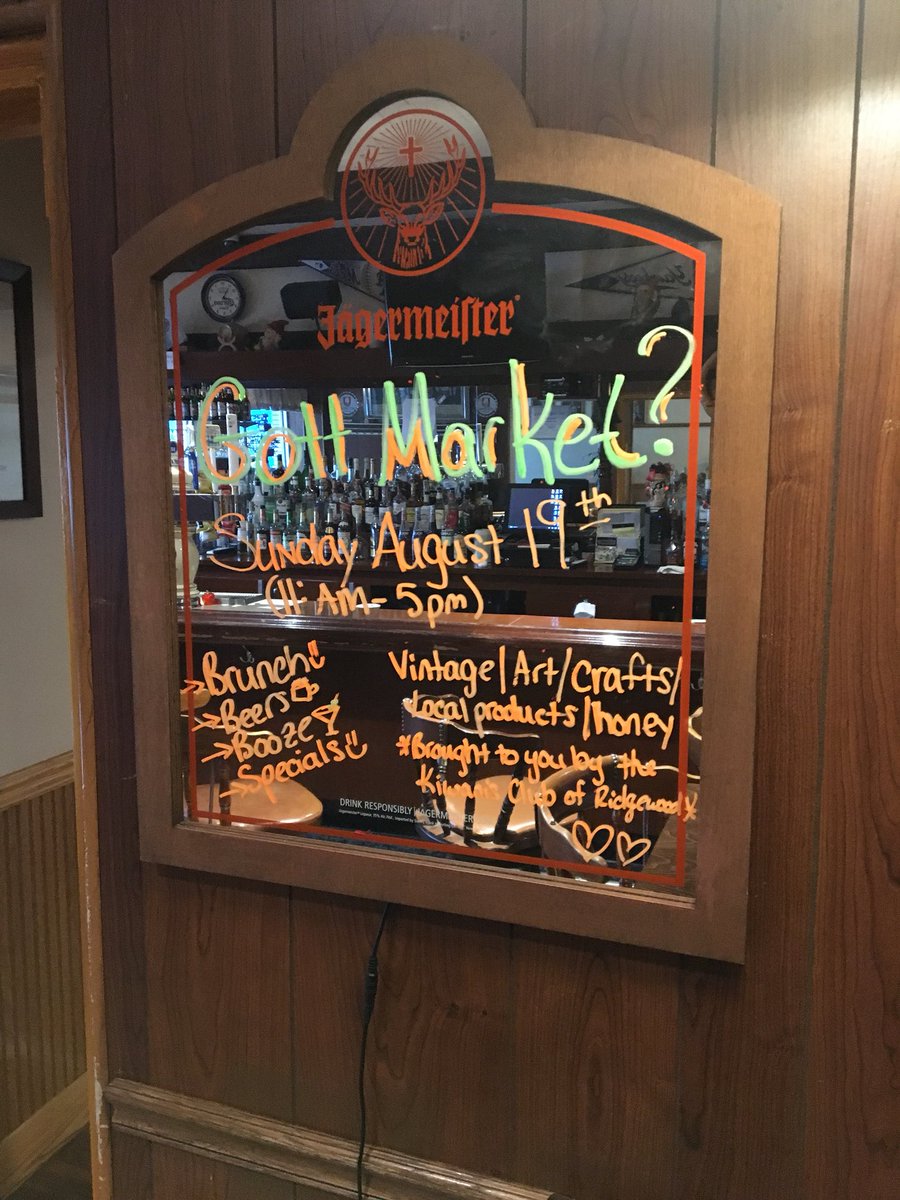 Jägermeister
Gott Market?
Sunday August 19th
(11:AM-5pm)
Brunch
Beers
Booze
Specials
Vintage/Art/Crafts/
Local products/honey
*Brought to you by the
Kiwanis Club of Ridgewood*
DRINK RESPONSIBLY JÄGERMEISTER